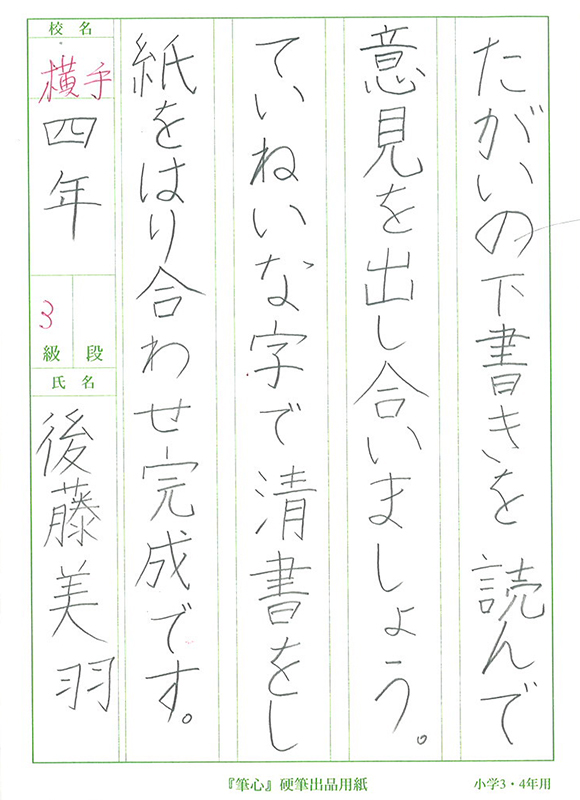 たがいの下書きを読んで
意見を出し合いましょう。
ていねいな字で清書をし
紙をはり合わせ完成です。
校名
横手
四年
3
級 段
氏名
後藤美羽
『筆心』硬筆出品用紙
小学3・4年用